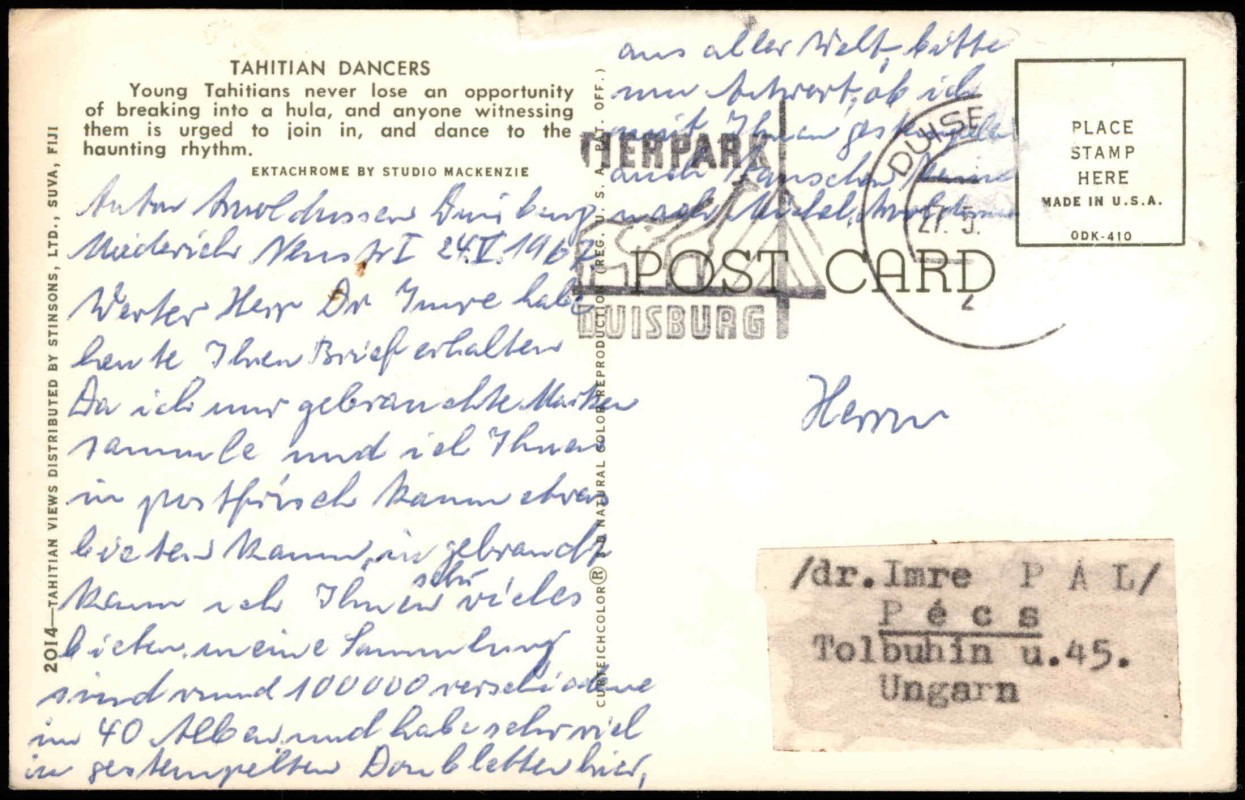 TAHITIAN DANCERS
Young Tahitians never lose an opportunity
of breaking into a hula, and anyone witnessing
them is urged to join in, and dance to the
haunting rhythm.
EKTACHROME BY STUDIO MACKENZIE
2014—TAHITIAN VIEWS DISTRIBUTED BY STINSONS, LTD., SUVA, FIJI
Anton Arnoldussen Duisburg
Meiderich Neustr I 24.V.1967
Werter Herr Dr Imre habe
heute Ihren Brief erhalten
Da ich nur gebrauchte Marken
sammle und ich Ihnen
in postfrisch kaum etwas
bieten kann, in gebraucht
kann ich Ihnen sehr vieles
bieten, meine Sammlung
sind rund 100000 verschiedene
in 40 Alben und habe sehr viel
in gestempelten Doubletten hier,
aus aller Welt, bitte
um Antwort, ob ich
mit Ihnen gestempelte
auch tauschen kann
nach Michel,
CURTEICHCOLOR® 3-D NATURAL COLOR REPRODUCTION (REG. U. S. A. PAT. OFF.)
TIERPARK
DUISBURG
DUISB
27. 5.
POST CARD
PLACE
STAMP
HERE
MADE IN U.S.A.
ODK-410
Herrn
/dr.Imre P Á L/
P é c s
Tolbuhin u.45.
Ungarn